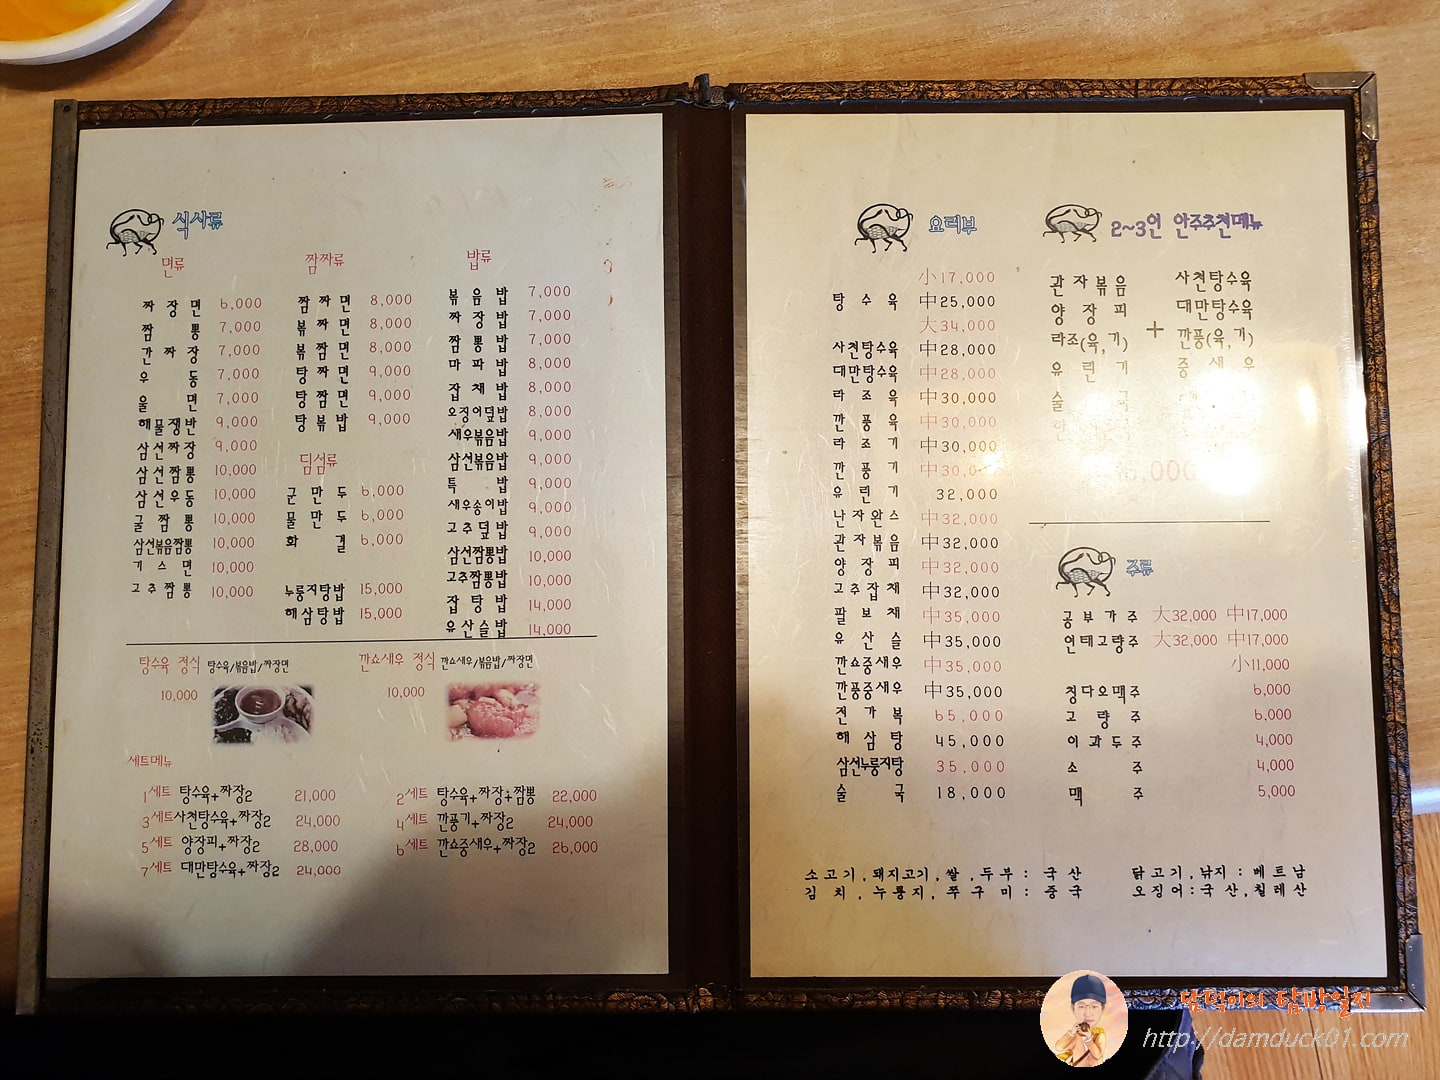 식사류
면류
짜장면 6,000
짬뽕 7,000
간짜장 7,000
우동 7,000
울면 7,000
해물쟁반 9,000
삼선짜장 9,000
삼선짬뽕 10,000
삼선우동 10,000
굴짬뽕 10,000
삼선볶음짬뽕 10,000
기스면 10,000
고추짬뽕 10,000
짬짜류
짬짜면 8,000
볶짜면 8,000
볶짬면 8,000
탕짜면 9,000
탕짬면 9,000
탕볶밥 9,000
딤섬류
군만두 6,000
물만두 6,000
화걸 6,000
누룽지탕밥 15,000
해삼탕밥 15,000
밥류
볶음밥 7,000
짜장밥 7,000
짬뽕밥 7,000
마파밥 8,000
잡채밥 8,000
오징어덮밥 8,000
새우볶음밥 9,000
삼선볶음밥 9,000
특밥 9,000
새우송이밥 9,000
고추덮밥 9,000
삼선짬뽕밥 10,000
고추짬뽕밥 10,000
잡탕밥 14,000
유산슬밥 14,000
탕수육 정식 탕수육/볶음밥/짜장면
10,000
깐쇼새우 정식 깐쇼새우/볶음밥/짜장면
10,000
세트메뉴
1세트 탕수육+짜장2 21,000
2세트 탕수육+짜장+짬뽕 22,000
3세트 사천탕수육+짜장2 24,000
4세트 깐풍기+짜장2 24,000
5세트 양장피+짜장2 28,000
6세트 깐쇼중새우+짜장2 26,000
7세트 대만탕수육+짜장2 24,000
요리부
小17,000
탕수육 中25,000
大34,000
사천탕수육 中28,000
대만탕수육 中28,000
라조육 中30,000
깐풍육 中30,000
라조기 中30,000
깐풍기 中30,000
유린기 32,000
난자완스 中32,000
관자볶음 中32,000
양장피 中32,000
고추잡채 中32,000
팔보채 中35,000
유산슬 中35,000
깐쇼중새우 中35,000
깐풍중새우 中35,000
전가복 65,000
해삼탕 45,000
삼선누룽지탕 35,000
술국 18,000
2~3인 안주추천메뉴
관자볶음
양장피
라조(육,기)
유린기
술국
+
사천탕수육
대만탕수육
깐풍(육,기)
중새우
주류
공부가주 大32,000 中17,000
연태고량주 大32,000 中17,000
小11,000
칭다오맥주 6,000
고량주 6,000
이과두주 4,000
소주 4,000
맥주 5,000
소고기,돼지고기,쌀,두부: 국산
닭고기,낚지:베트남
김치,누룽지,쭈구미: 중국
오징어:국산,칠레산
담덕이의 탐방일지
http://damduck01.com